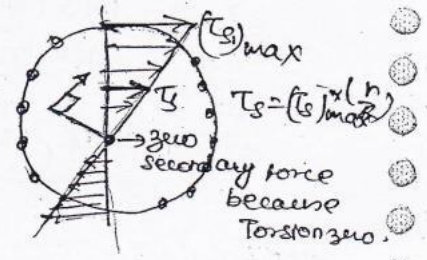 (τs₁)max
τs
τs = (τs)max × (r/R)
→ zero
secondary force
because
Torsion zero.